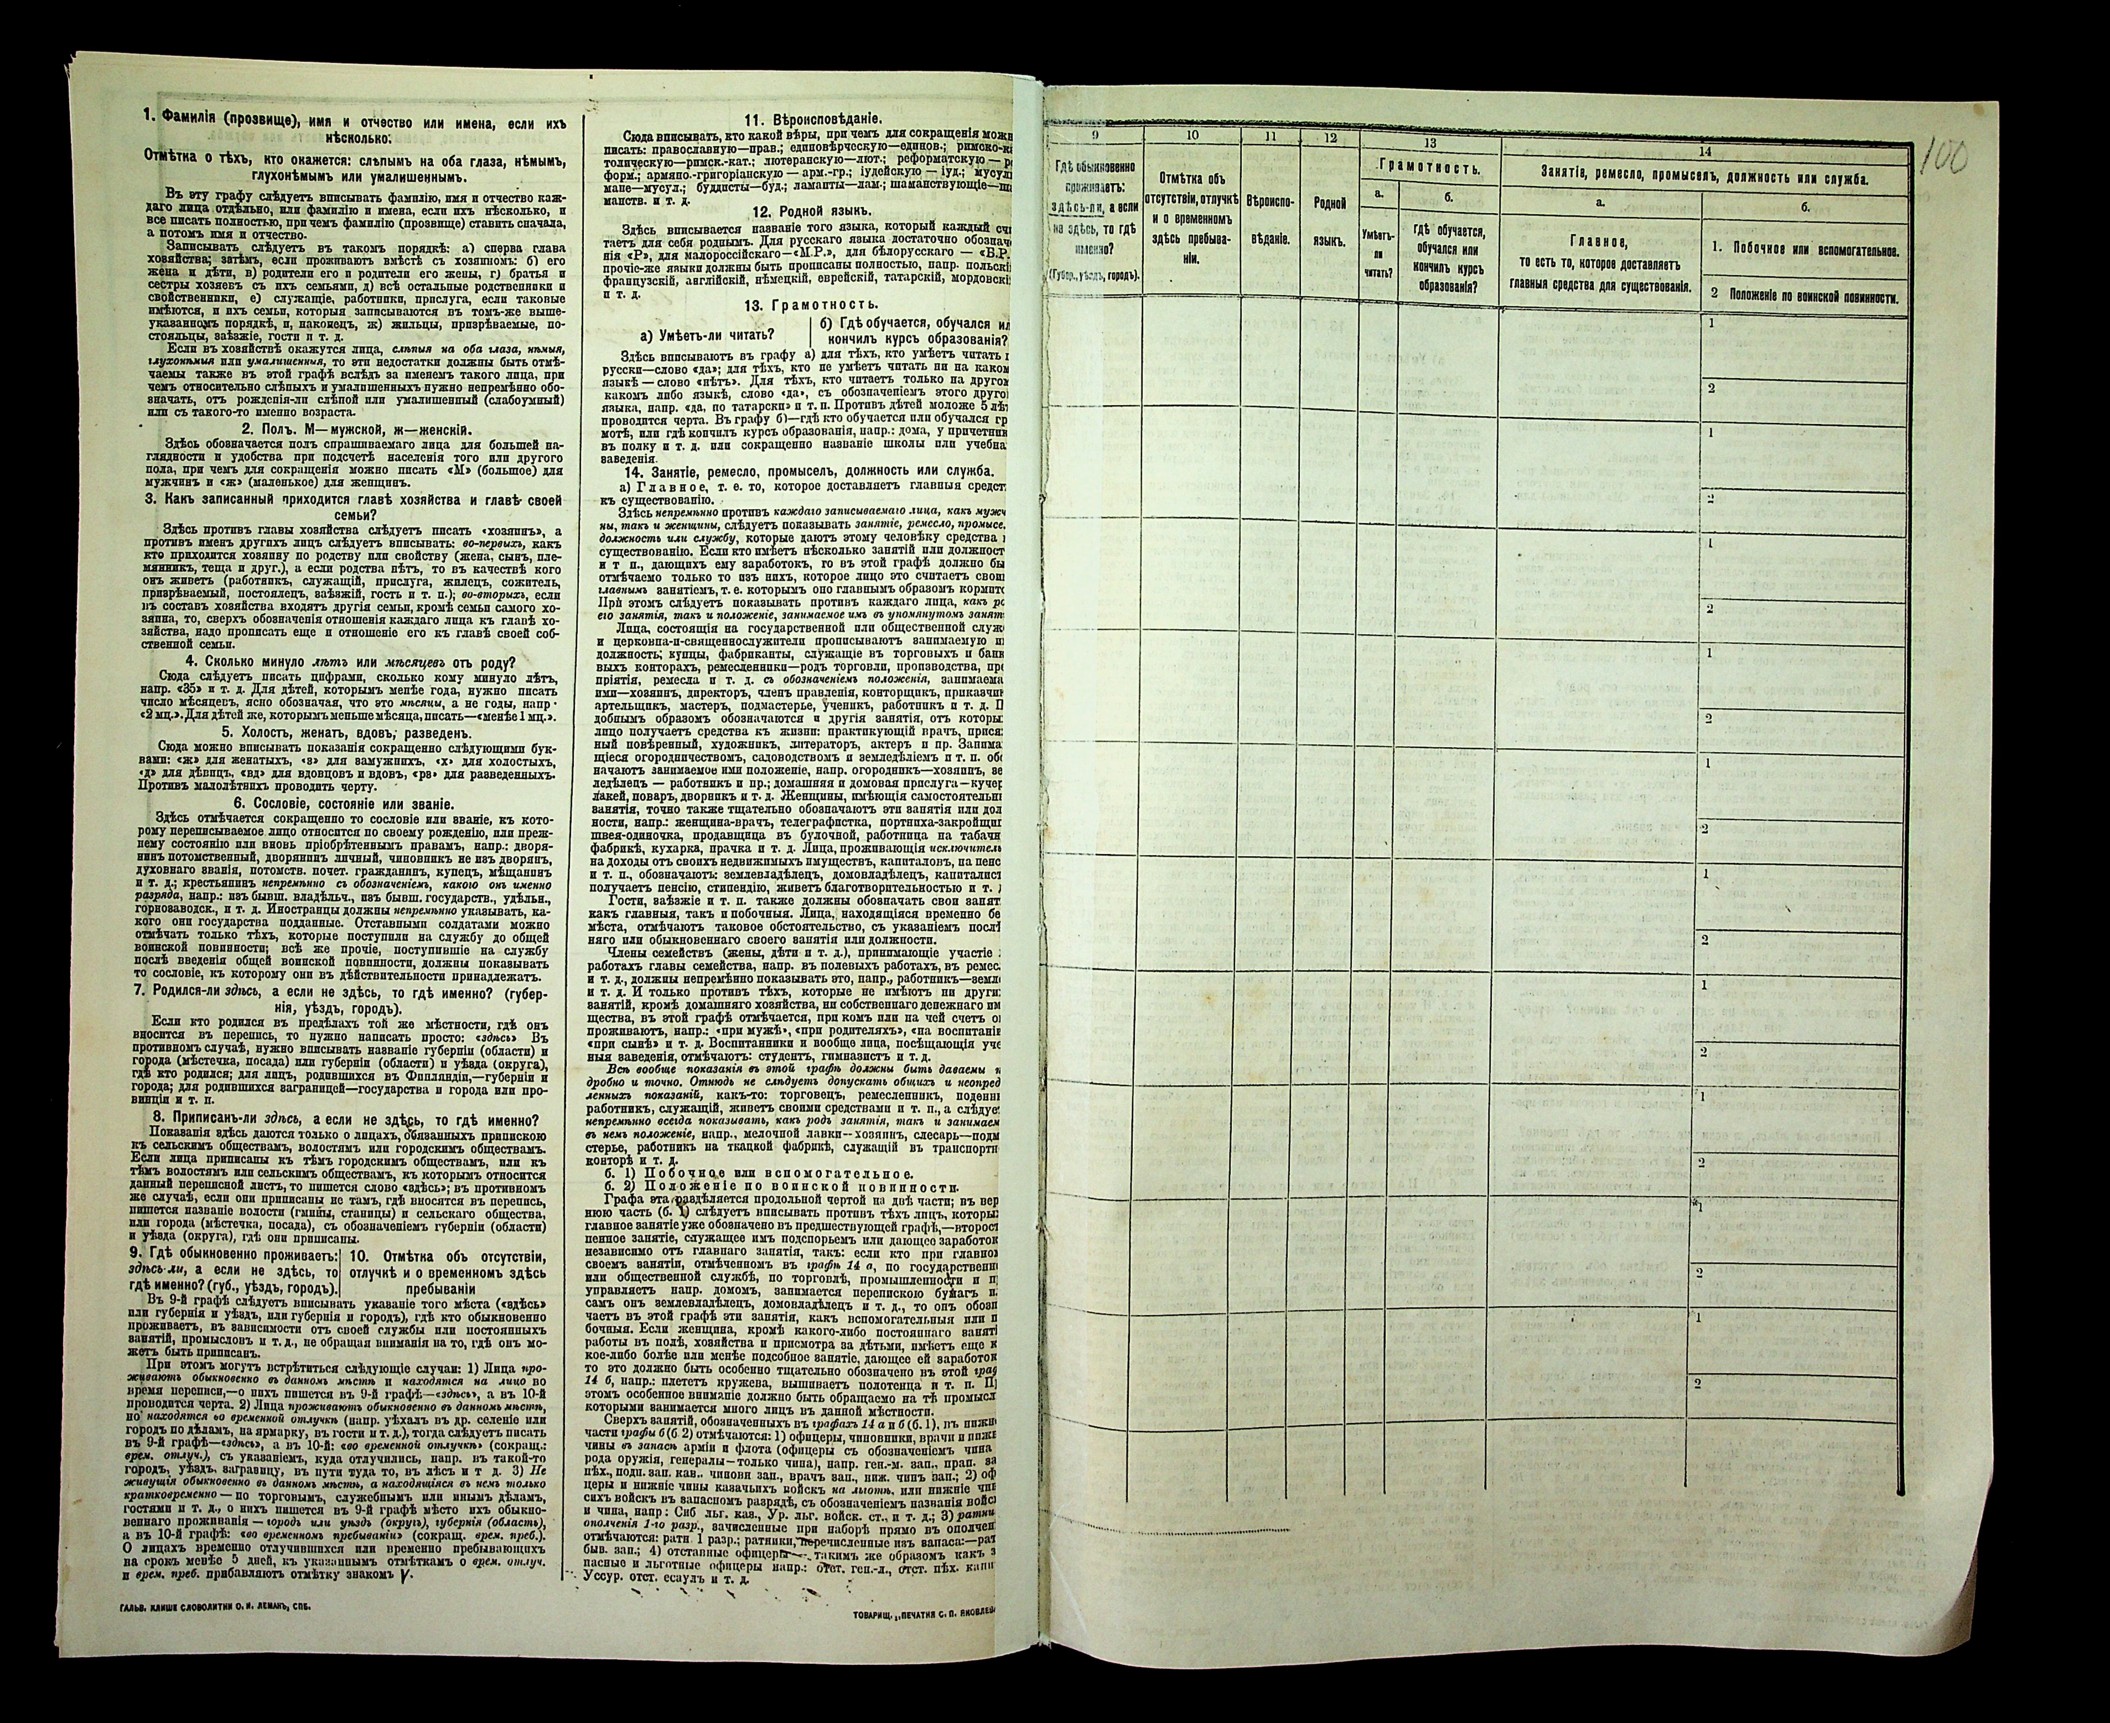 1. Фамилія (прозвище), имя и отчество или имена, если ихъ
нѣсколько.
Отмѣтка о тѣхъ, кто окажется: слѣпымъ на оба глаза, нѣмымъ,
глухонѣмымъ или умалишеннымъ.
Въ эту графу слѣдуетъ вписывать фамилію, имя и отчество каж-
даго лица отдѣльно, или фамилію и имена, если ихъ нѣсколько, и
все писать полностью, при чемъ фамилію (прозвище) ставить сначала,
а потомъ имя и отчество.
Записывать слѣдуетъ въ такомъ порядкѣ: а) сперва глава
хозяйства; затѣмъ, если проживаютъ вмѣстѣ съ хозяиномъ: б) его
жена и дѣти, в) родители его и родители его жены, г) братья и
сестры хозяевъ съ ихъ семьями, д) всѣ остальные родственники и
свойственники, е) служащіе, работники, прислуга, если таковые
имѣются, и ихъ семьи, которыя записываются въ томъ-же выше-
указанномъ порядкѣ, и, наконецъ, ж) жильцы, призрѣваемые, по-
стояльцы, заѣзжіе, гости и т. д.
Если въ хозяйствѣ окажутся лица, слѣпыя на оба глаза, нѣмыя,
глухонѣмыя или умалишенныя, то эти недостатки должны быть отмѣ-
чаемы также въ этой графѣ вслѣдъ за именемъ такого лица, при
чемъ относительно слѣпыхъ и умалишенныхъ нужно непремѣнно обо-
значать, отъ рожденія-ли слѣпой или умалишенный (слабоумный)
или съ такого-то именно возраста.
2. Полъ. М—мужской, ж—женскій.
Здѣсь обозначается полъ спрашиваемаго лица для большей на-
глядности и удобства при подсчетѣ населенія того или другого
пола, при чемъ для сокращенія можно писать «М» (большое) для
мужчинъ и «ж» (маленькое) для женщинъ.
3. Какъ записанный приходится главѣ хозяйства и главѣ своей
семьи?
Здѣсь противъ главы хозяйства слѣдуетъ писать «хозяинъ», а
противъ именъ другихъ лицъ слѣдуетъ вписывать: во-первыхъ, какъ
кто приходится хозяину по родству или свойству (жена, сынъ, пле-
мянникъ, теща и друг.), а если родства нѣтъ, то въ качествѣ кого
онъ живетъ (работникъ, служащій, прислуга, жилецъ, сожитель,
призрѣваемый, постоялецъ, заѣзжій, гость и т. п.); во-вторыхъ, если
въ составъ хозяйства входятъ другія семьи, кромѣ семьи самого хо-
зяина, то, сверхъ обозначенія отношенія каждаго лица къ главѣ хо-
зяйства, надо прописать еще и отношеніе его къ главѣ своей соб-
ственной семьи.
4. Сколько минуло лѣтъ или мѣсяцевъ отъ роду?
Сюда слѣдуетъ писать цифрами, сколько кому минуло лѣтъ,
напр. «35» и т. д. Для дѣтей, которымъ менѣе года, нужно писать
число мѣсяцевъ, ясно обозначая, что это мѣсяцы, а не годы, напр·
«2 мц.». Для дѣтей же, которымъ меньше мѣсяца, писать—«менѣе 1 мц.».
5. Холостъ, женатъ, вдовъ, разведенъ.
Сюда можно вписывать показанія сокращенно слѣдующими бук-
вами: «ж» для женатыхъ, «з» для замужнихъ, «х» для холостыхъ,
«д» для дѣвицъ, «вд» для вдовцовъ и вдовъ, «рз» для разведенныхъ.
Противъ малолѣтнихъ проводить черту.
6. Сословіе, состояніе или званіе.
Здѣсь отмѣчается сокращенно то сословіе или званіе, къ кото-
рому переписываемое лицо относится по своему рожденію, или преж-
нему состоянію или вновь пріобрѣтеннымъ правамъ, напр.: дворя-
нинъ потомственный, дворянинъ личный, чиновникъ не изъ дворянъ,
духовнаго званія, потомств. почет. гражданинъ, купецъ, мѣщанинъ
и т. д.; крестьянинъ непремѣнно съ обозначеніемъ, какого онъ именно
разряда, напр.: изъ бывш. владѣльч., изъ бывш. государств., удѣльн.,
горнозаводск., и т. д. Иностранцы должны непремѣнно указывать, ка-
кого они государства подданные. Отставными солдатами можно
отмѣчать только тѣхъ, которые поступили на службу до общей
воинской повинности; всѣ же прочіе, поступившіе на службу
послѣ введенія общей воинской повинности, должны показывать
то сословіе, къ которому они въ дѣйствительности принадлежатъ.
7. Родился-ли здѣсь, а если не здѣсь, то гдѣ именно? (губер-
нія, уѣздъ, городъ).
Если кто родился въ предѣлахъ той же мѣстности, гдѣ онъ
вносится въ перепись, то нужно написать просто: «здѣсь» Въ
противномъ случаѣ, нужно вписывать названіе губерніи (области) и
города (мѣстечка, посада) или губерніи (области) и уѣзда (округа),
гдѣ кто родился; для лицъ, родившихся въ Финляндіи,—губерніи и
города; для родившихся заграницей—государства и города или про-
винціи и т. п.
8. Приписанъ-ли здѣсь, а если не здѣсь, то гдѣ именно?
Показанія здѣсь даются только о лицахъ, обязанныхъ припискою
къ сельскимъ обществамъ, волостямъ или городскимъ обществамъ.
Если лица приписаны къ тѣмъ городскимъ обществамъ, или къ
тѣмъ волостямъ или сельскимъ обществамъ, къ которымъ относится
данный переписной листъ, то пишется слово «здѣсь»; въ противномъ
же случаѣ, если они приписаны не тамъ, гдѣ вносятся въ перепись,
пишется названіе волости (гмины, станицы) и сельскаго общества,
или города (мѣстечка, посада), съ обозначеніемъ губерніи (области)
и уѣзда (округа), гдѣ они приписаны.
9. Гдѣ обыкновенно проживаетъ:
здѣсь-ли, а если не здѣсь, то
гдѣ именно? (губ., уѣздъ, городъ).
10. Отмѣтка объ отсутствіи,
отлучкѣ и о временномъ здѣсь
пребываніи
Въ 9-й графѣ слѣдуетъ вписывать указаніе того мѣста («здѣсь»
или губернія и уѣздъ, или губернія и городъ), гдѣ кто обыкновенно
проживаетъ, въ зависимости отъ своей службы или постоянныхъ
занятій, промысловъ и т. д., не обращая вниманія на то, гдѣ онъ мо-
жетъ быть приписанъ.
При этомъ могутъ встрѣтиться слѣдующіе случаи: 1) Лица про-
живаютъ обыкновенно въ данномъ мѣстѣ и находятся на лицо во
время переписи,—о нихъ пишется въ 9-й графѣ—«здѣсь», а въ 10-й
проводится черта. 2) Лица проживаютъ обыкновенно въ данномъ мѣстѣ,
но находятся во временной отлучкѣ (напр. уѣхалъ въ др. селеніе или
городъ по дѣламъ, на ярмарку, въ гости и т. д.), тогда слѣдуетъ писать
въ 9-й графѣ—«здѣсь», а въ 10-й: «во временной отлучкѣ» (сокращ.:
врем. отлуч.), съ указаніемъ, куда отлучились, напр. въ такой-то
городъ, уѣздъ, заграницу, въ пути туда то, въ лѣсъ и т д. 3) Не
живущія обыкновенно въ данномъ мѣстѣ, а находящіяся въ немъ только
кратковременно — по торговымъ, служебнымъ или инымъ дѣламъ,
гостями и т. д., о нихъ пишется въ 9-й графѣ мѣсто ихъ обыкно-
веннаго проживанія — городъ или уѣздъ (округъ), губернія (область),
а въ 10-й графѣ: «во временномъ пребываніи» (сокращ. врем. преб.).
О лицахъ временно отлучившихся или временно пребывающихъ
на срокъ менѣе 5 дней, къ указаннымъ отмѣткамъ о врем. отлуч.
и врем. преб. прибавляютъ отмѣтку знакомъ V.
ГАЛЬВ. КЛИШЕ СЛОВОЛИТНИ О. И. ЛЕМАНЪ, СПБ.
11. Вѣроисповѣданіе.
Сюда вписывать, кто какой вѣры, при чемъ для сокращенія можн
писать: православную—прав.; единовѣрческую—единов.; римско-ка
толическую—римск.-кат.; лютеранскую—лют.; реформатскую — ре
форм.; армяно.-григоріанскую — арм.-гр.; іудейскую — іуд.; мусул
мане—мусул.; буддисты—буд.; ламаиты—лам.; шаманствующіе—ша
манств. и т. д.
12. Родной языкъ.
Здѣсь вписывается названіе того языка, который каждый счи
таетъ для себя роднымъ. Для русскаго языка достаточно обознач
нія «Р», для малороссійскаго—«М.Р.», для бѣлорусскаго — «Б.Р.
прочіе-же языки должны быть прописаны полностью, напр. польскі
французскій, англійскій, нѣмецкій, еврейскій, татарскій, мордовскі
и т. д.
13. Грамотность.
а) Умѣетъ-ли читать?
б) Гдѣ обучается, обучался ил
кончилъ курсъ образованія?
Здѣсь вписываютъ въ графу а) для тѣхъ, кто умѣетъ читать п
русски—слово «да»; для тѣхъ, кто не умѣетъ читать ни на каком
языкѣ — слово «нѣтъ». Для тѣхъ, кто читаетъ только на другом
какомъ либо языкѣ, слово «да», съ обозначеніемъ этого друго
языка, напр. «да, по татарски» и т. п. Противъ дѣтей моложе 5 лѣт
проводится черта. Въ графу б)—гдѣ кто обучается или обучался гр
мотѣ, или гдѣ кончилъ курсъ образованія, напр.: дома, у причетник
въ полку и т. д. или сокращенно названіе школы или учебна
заведенія.
14. Занятіе, ремесло, промыселъ, должность или служба.
а) Главное, т. е. то, которое доставляетъ главныя средст
къ существованію.
Здѣсь непремѣнно противъ каждаго записываемаго лица, какъ мужч
ны, такъ и женщины, слѣдуетъ показывать занятіе, ремесло, промысе
должность или службу, которые даютъ этому человѣку средства к
существованію. Если кто имѣетъ нѣсколько занятій или должност
и т п., дающихъ ему заработокъ, то въ этой графѣ должно бы
отмѣчаемо только то изъ нихъ, которое лицо это считаетъ свои
главнымъ занятіемъ, т. е. которымъ оно главнымъ образомъ кормитс
При этомъ слѣдуетъ показывать противъ каждаго лица, какъ ро
его занятія, такъ и положеніе, занимаемое имъ въ упомянутомъ занят
Лица, состоящія на государственной или общественной служ
и церковна-и-священнослужители прописываютъ занимаемую и
должность; купцы, фабриканты, служащіе въ торговыхъ и банк
выхъ конторахъ, ремесленники—родъ торговли, производства, пре
пріятія, ремесла и т. д. съ обозначеніемъ положенія, занимаема
ими—хозяинъ, директоръ, членъ правленія, конторщикъ, приказчик
артельщикъ, мастеръ, подмастерье, ученикъ, работникъ и т. д. П
добнымъ образомъ обозначаются и другія занятія, отъ которы
лицо получаетъ средства къ жизни: практикующій врачъ, прися
ный повѣренный, художникъ, литераторъ, актеръ и пр. Занима
щіеся огородничествомъ, садоводствомъ и земледѣліемъ и т. п. обо
начаютъ занимаемое ими положеніе, напр. огородникъ—хозяинъ, зе
ледѣлецъ — работникъ и пр.; домашняя и домовая прислуга—кучер
лакей, поваръ, дворникъ и т. д. Женщины, имѣющія самостоятельны
занятія, точно также тщательно обозначаютъ эти занятія или дол
ности, напр.: женщина-врачъ, телеграфистка, портниха-закройщиц
швея-одиночка, продавщица въ булочной, работница на табачн
фабрикѣ, кухарка, прачка и т. д. Лица, проживающія исключитель
на доходы отъ своихъ недвижимыхъ имуществъ, капиталовъ, на пенс
и т. п., обозначаютъ: землевладѣлецъ, домовладѣлецъ, капиталист
получаетъ пенсію, стипендію, живетъ благотворительностью и т. д
Гости, заѣзжіе и т. п. также должны обозначать свои занят
какъ главныя, такъ и побочныя. Лица, находящіяся временно бе
мѣста, отмѣчаютъ таковое обстоятельство, съ указаніемъ послѣ
няго или обыкновеннаго своего занятія или должности.
Члены семействъ (жены, дѣти и т. д.), принимающіе участіе
работахъ главы семейства, напр. въ полевыхъ работахъ, въ ремес.
и т. д., должны непремѣнно показывать это, напр., работникъ—земл
и т. д. И только противъ тѣхъ, которые не имѣютъ ни други
занятій, кромѣ домашняго хозяйства, ни собственнаго денежнаго им
щества, въ этой графѣ отмѣчается, при комъ или на чей счетъ он
проживаютъ, напр.: «при мужѣ», «при родителяхъ», «на воспитаніи
«при сынѣ» и т. д. Воспитанники и вообще лица, посѣщающія уче
ныя заведенія, отмѣчаютъ: студентъ, гимназистъ и т. д.
Всѣ вообще показанія въ этой графѣ должны быть даваемы п
дробно и точно. Отнюдь не слѣдуетъ допускать общихъ и неопред
ленныхъ показаній, какъ-то: торговецъ, ремесленникъ, поденн
работникъ, служащій, живетъ своими средствами и т. п., а слѣдуе
непремѣнно всегда показывать, какъ родъ занятія, такъ и занимаем
въ немъ положеніе, напр., мелочной лавки--хозяинъ, слесарь—подм
стерье, работникъ на ткацкой фабрикѣ, служащій въ транспортн
конторѣ и т. д.
б. 1) Побочное или вспомогательное.
б. 2) Положеніе по воинской повинности.
Графа эта раздѣляется продольной чертой на двѣ части; въ вер
нюю часть (б. 1) слѣдуетъ вписывать противъ тѣхъ лицъ, которы
главное занятіе уже обозначено въ предшествующей графѣ,—второст
пенное занятіе, служащее имъ подспорьемъ или дающее заработок
независимо отъ главнаго занятія, такъ: если кто при главно
своемъ занятіи, отмѣченномъ въ графѣ 14 а, по государственн
или общественной службѣ, по торговлѣ, промышленности и п
управляетъ напр. домомъ, занимается перепискою бумагъ и
самъ онъ землевладѣлецъ, домовладѣлецъ и т. д., то онъ обозн
чаетъ въ этой графѣ эти занятія, какъ вспомогательныя или п
бочныя. Если женщина, кромѣ какого-либо постояннаго заняті
работы въ полѣ, хозяйства и присмотра за дѣтьми, имѣетъ еще к
кое-либо болѣе или менѣе подсобное занятіе, дающее ей заработок
то это должно быть особенно тщательно обозначено въ этой граф
14 б, напр.: плететъ кружева, вышиваетъ полотенца и т. п. П
этомъ особенное вниманіе должно быть обращаемо на тѣ промысл
которыми занимается много лицъ въ данной мѣстности.
Сверхъ занятій, обозначенныхъ въ графахъ 14 а и б (б. 1), въ нижн
части графы б (б 2) отмѣчаются: 1) офицеры, чиновники, врачи и нижн
чины въ запасѣ арміи и флота (офицеры съ обозначеніемъ чина
рода оружія, генералы—только чина), напр. ген.-м. зап., прап. за
пѣх., подп. зап. кав.. чиновн зап., врачъ зап., ниж. чинъ зап.; 2) оф
церы и нижніе чины казачьихъ войскъ на льготѣ, или нижніе чин
сихъ войскъ въ запасномъ разрядѣ, съ обозначеніемъ названія войс
и чина, напр: Сиб льг. каз., Ур. льг. войск. ст., и т. д.; 3) ратни
ополченія 1-го разр., зачисленные при наборѣ прямо въ ополчен
отмѣчаются: ратн. 1 разр.; ратники, перечисленные изъ запаса:—рат
быв. зап.; 4) отставные офицеры— такимъ же образомъ какъ з
пасные и льготные офицеры напр.: отст. ген.-л., отст. пѣх. капи
Уссур. отст. есаулъ и т. д.
ТОВАРИЩ. „ПЕЧАТНЯ С. П. ЯКОВЛЕВА
100
9
10
11
12
13
14
Гдѣ обыкновенно
проживаетъ:
здѣсь-ли, а если
не здѣсь, то гдѣ
именно?
(Губер., уѣздъ, городъ).
Отмѣтка объ
отсутствіи, отлучкѣ
и о временномъ
здѣсь пребыва-
ніи.
Вѣроиспо-
вѣданіе.
Родной
языкъ.
Грамотность.
а.
Умѣетъ-
ли
читать?
б.
гдѣ обучается,
обучался или
кончилъ курсъ
образованія?
Занятіе, ремесло, промыселъ, должность или служба.
а.
Главное,
то есть то, которое доставляетъ
главныя средства для существованія.
б.
1. Побочное или вспомогательное.
2 Положеніе по воинской повинности.
1
2
1
2
1
2
1
2
1
2
1
2
1
2
1
2
1
2
1
2